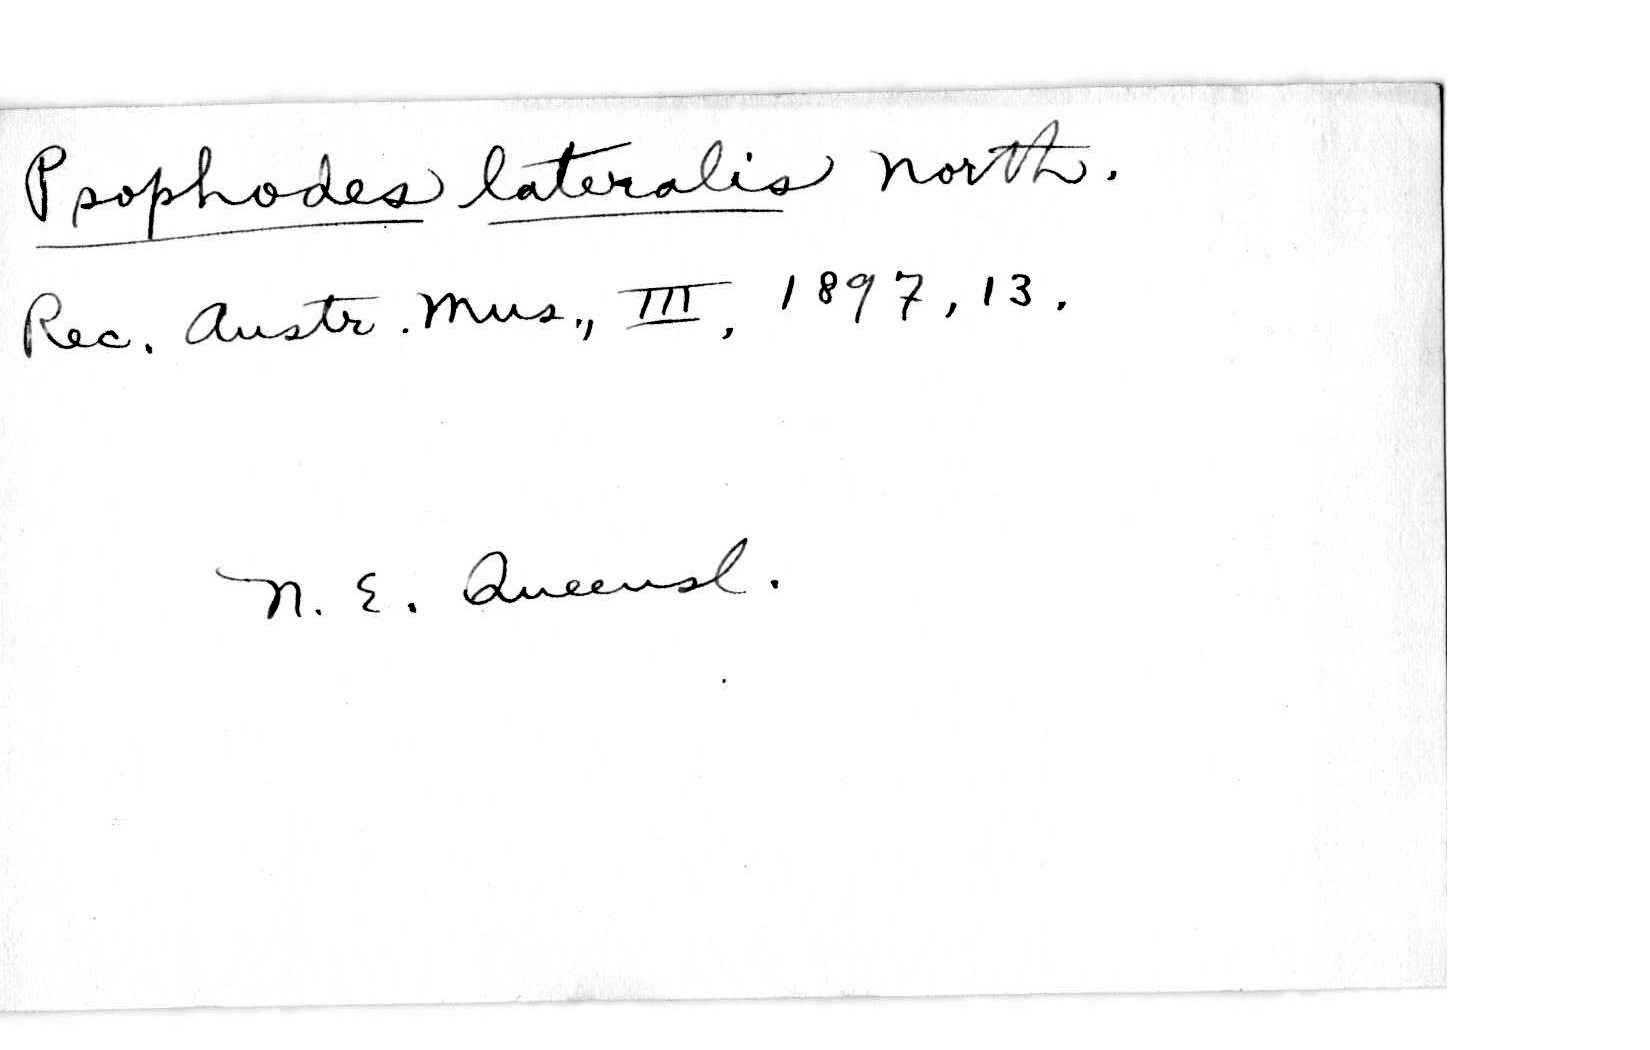 Psophodes lateralis North.
Rec. Austr. Mus., III, 1897, 13.
N. E. Queensl.